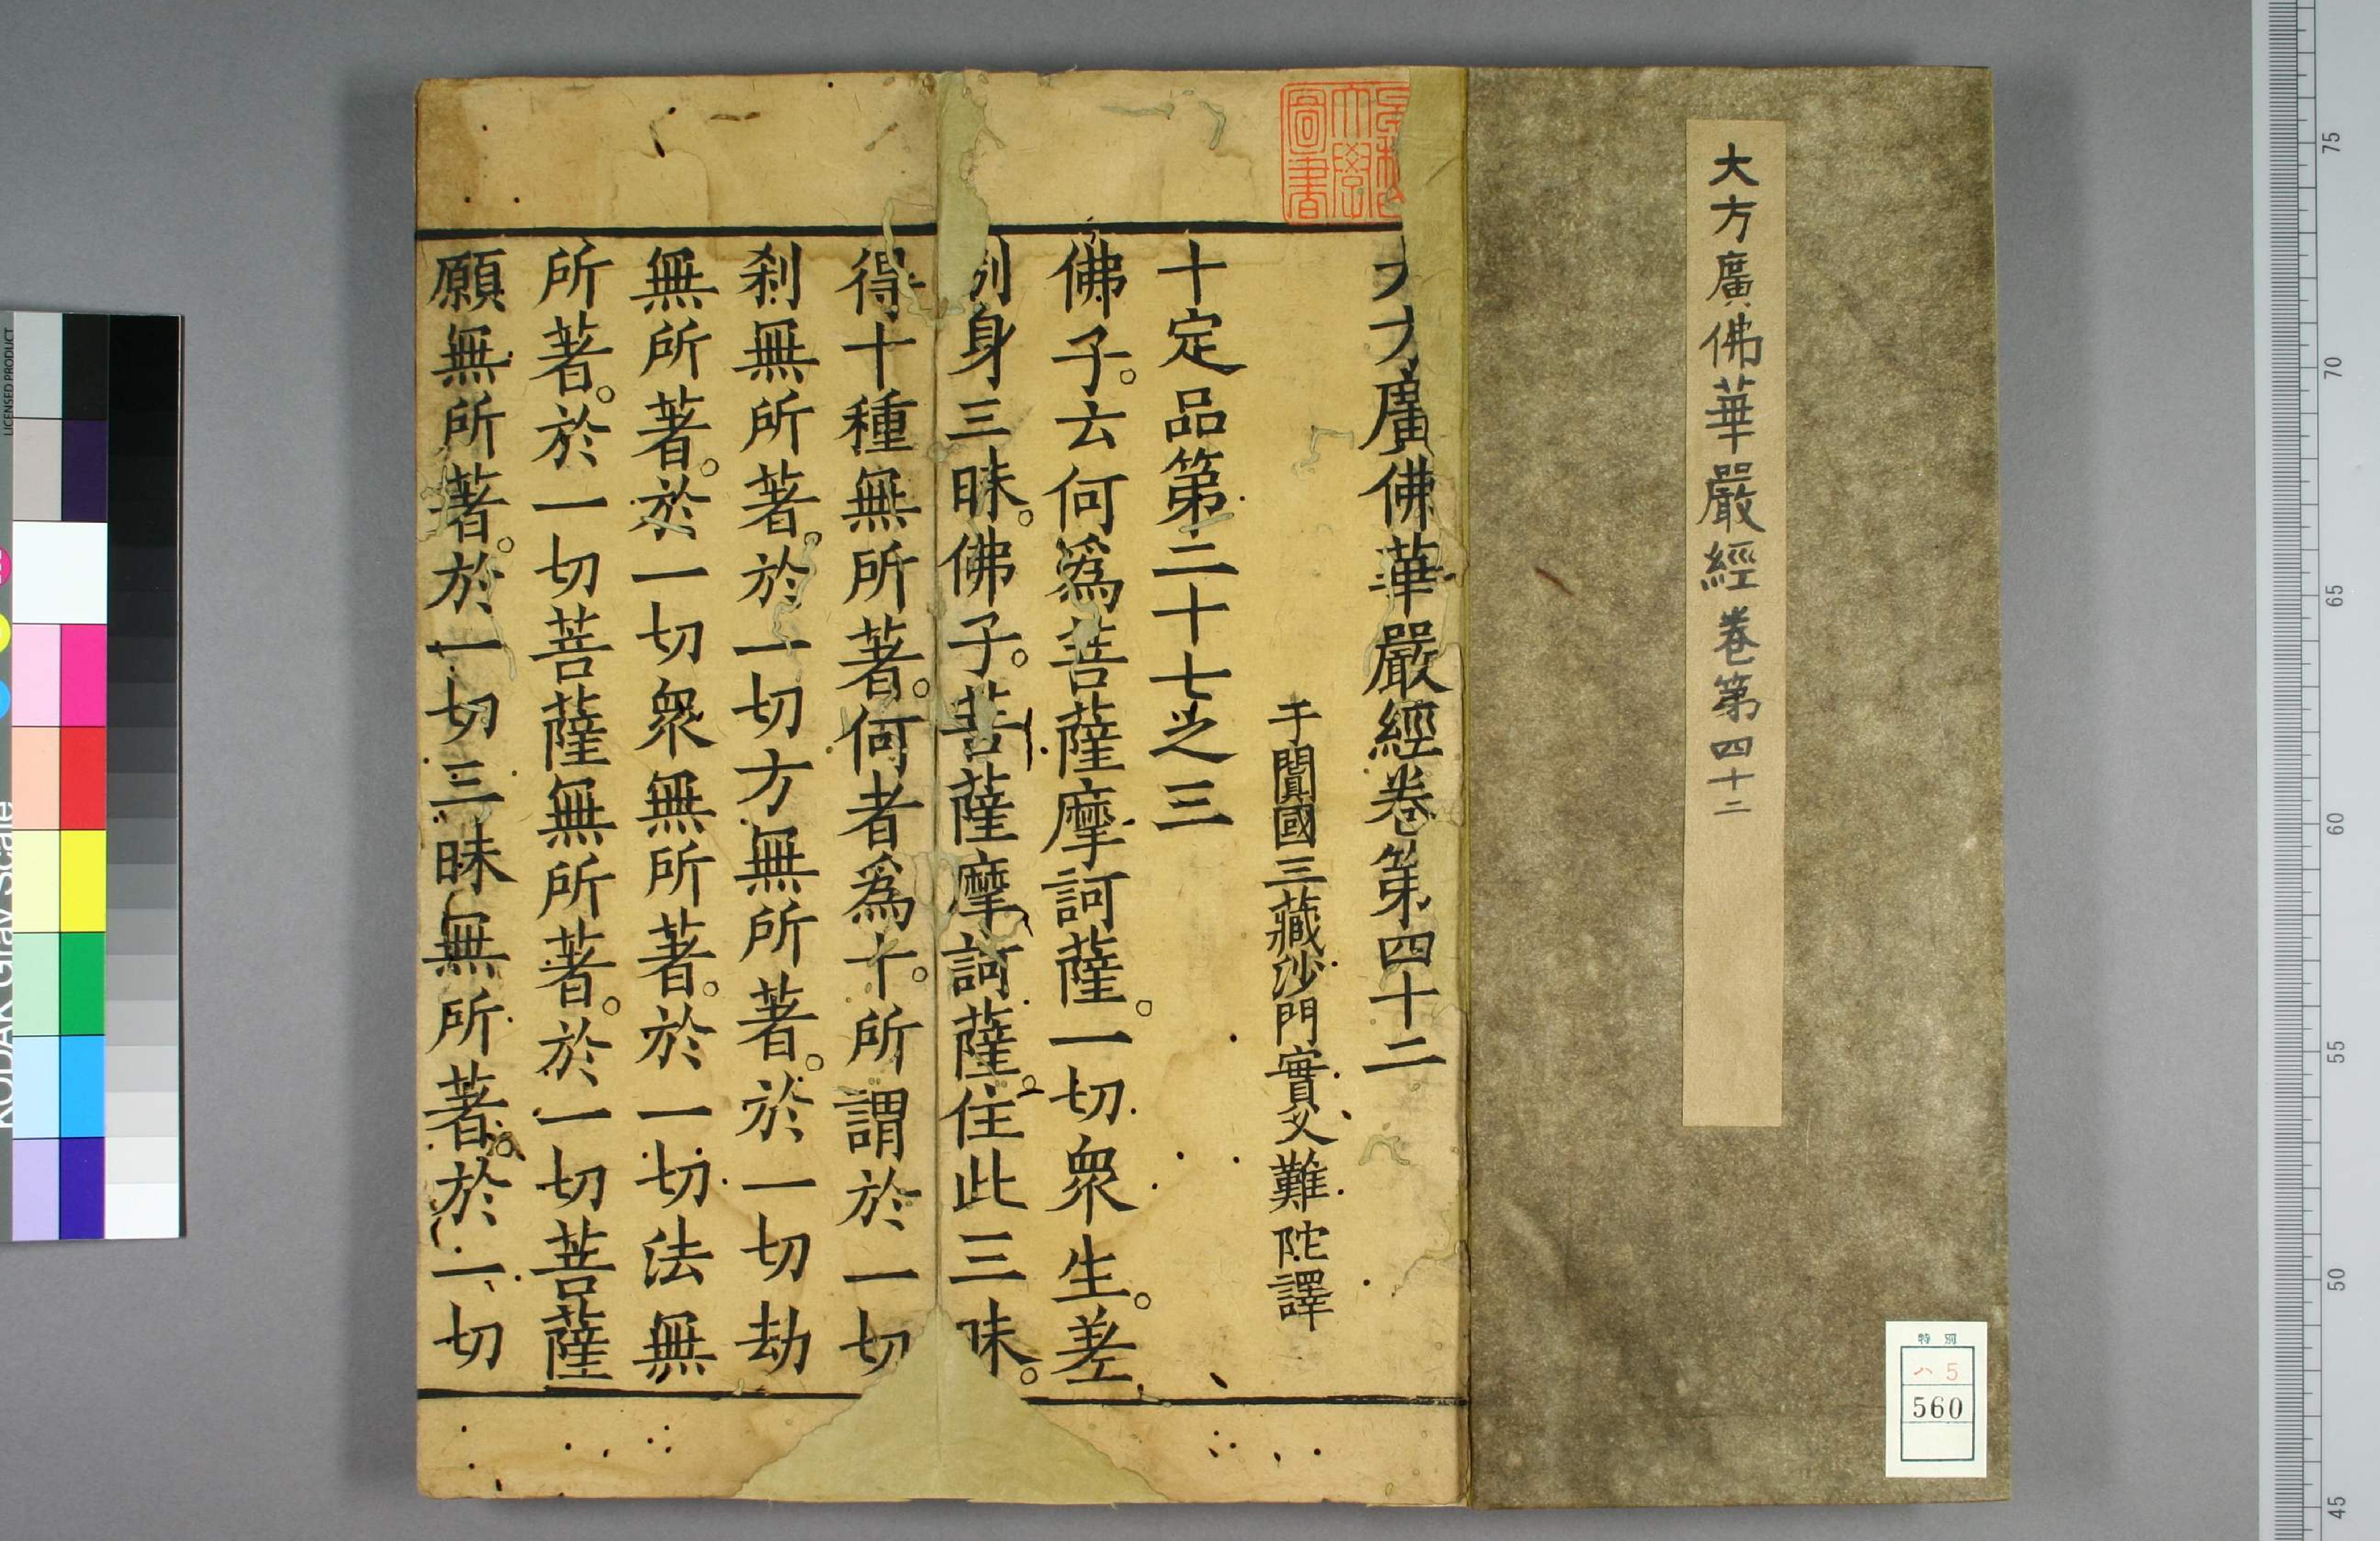 大方廣佛華嚴經卷第四十二
特別
ハ5
560
大方廣佛華嚴經卷第四十二
于闐國三藏沙門實叉難陀譯
十定品第二十七之三
佛子。云何爲菩薩摩訶薩。一切衆生。差
別身三昧。佛子。菩薩摩訶薩。住此三昧。
得十種無所著。何者爲十。所謂於一切
刹無所著。於一切方無所著。於一切劫
無所著。於一切衆無所著。於一切法無
所著。於一切菩薩無所著。於一切菩薩
願無所著。於一切三昧無所著。於一切
大學
圖書
75
70
65
60
55
50
45
LICENSED PRODUCT
KODAK Gray Scale